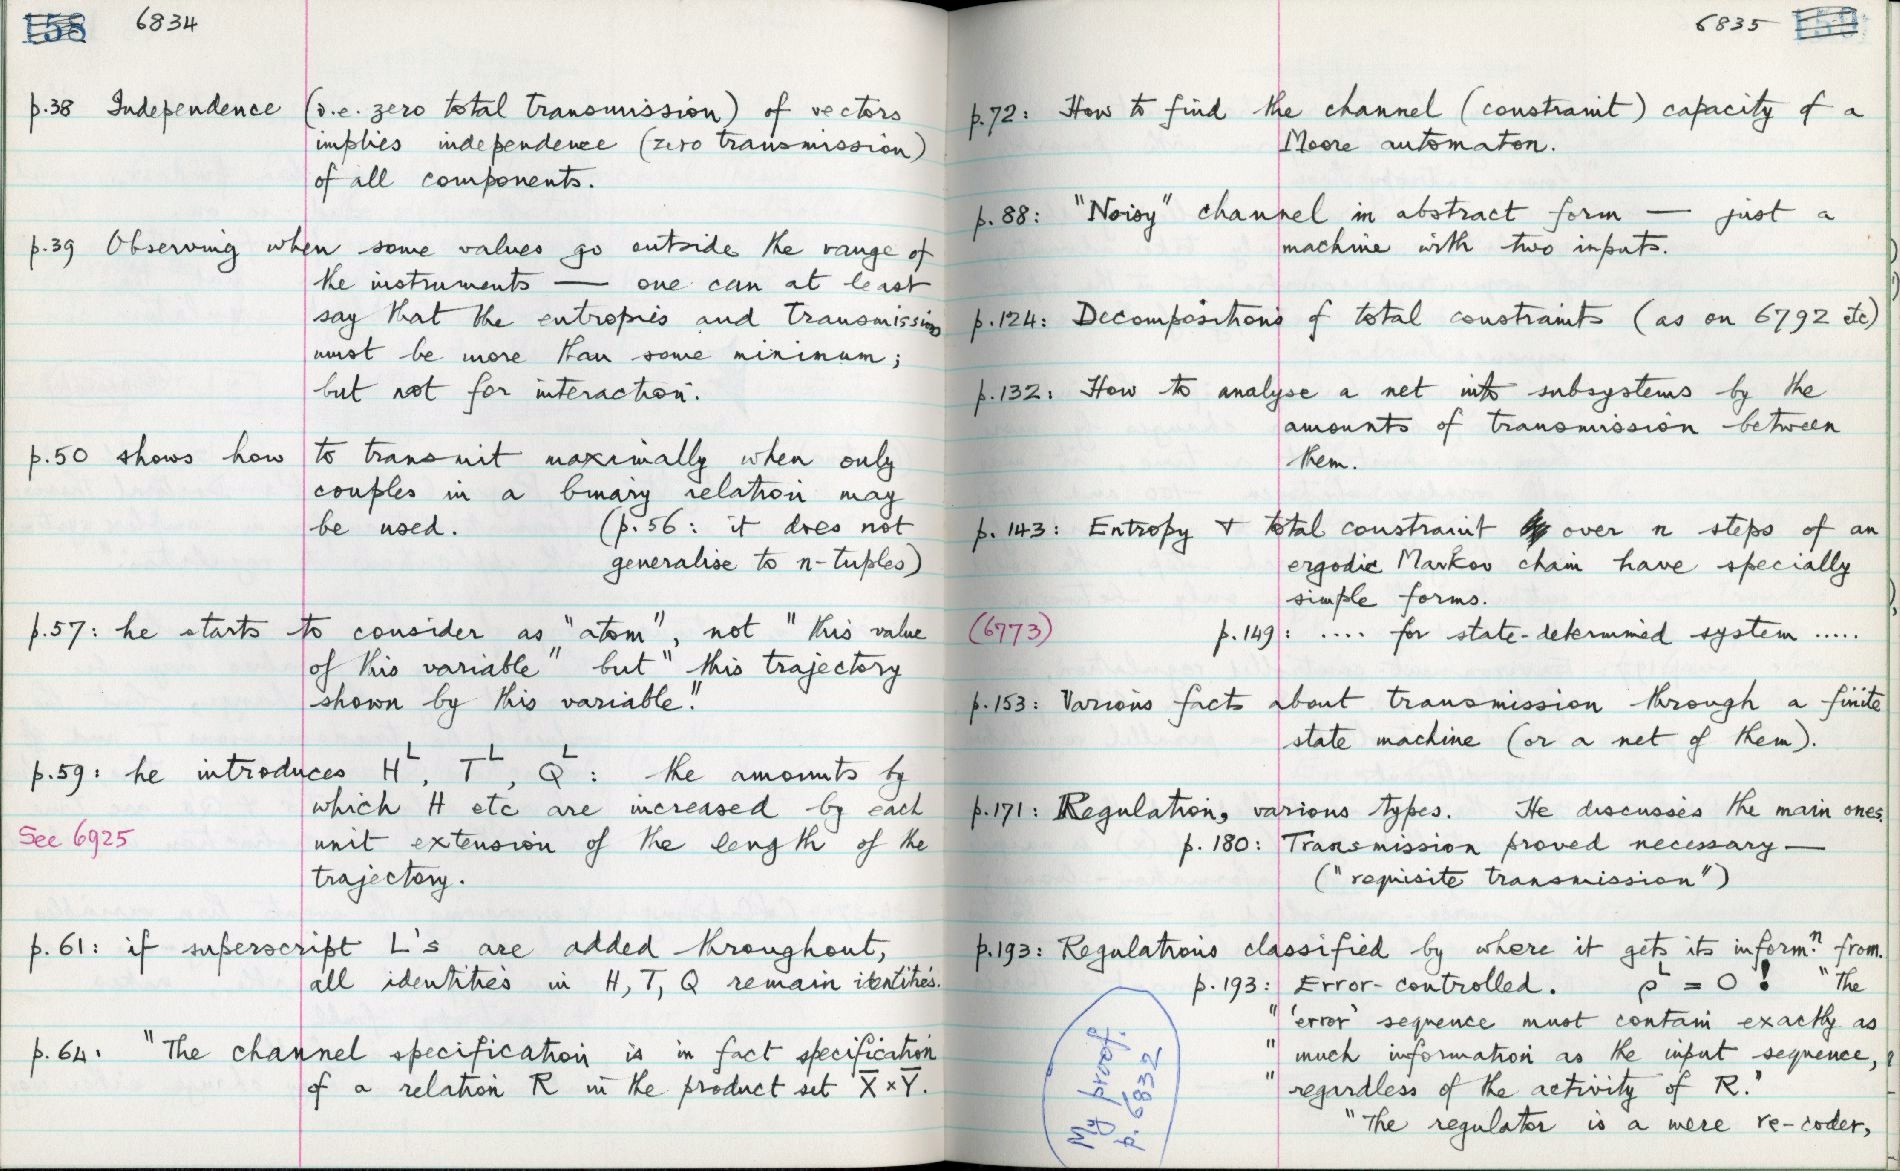 158 6834
p.38 Independence (i.e. zero total transmission) of vectors
implies independence (zero transmission)
of all components.
p.39 Observing when some values go outside the range of
the instruments — one can at least
say that the entropies and transmissions
must be more than some minimum;
but not for interaction.
p.50 shows how to transmit maximally when only
couples in a binary relation may
be used. (p.56: it does not
generalise to n-tuples)
p.57: he starts to consider as "atom", not "this value
of this variable" but "this trajectory
shown by this variable."
p.59: he introduces H^L, T^L, Q^L: the amounts by
which H etc are increased by each
See 6925 unit extension of the length of the
trajectory.
p.61: if superscript L's are added throughout,
all identities in H, T, Q remain identities.
p.64. "The channel specification is in fact specification
of a relation R in the product set X̄×Ȳ.
6835 159
p.72: How to find the channel (constraint) capacity of a
Moore automaton.
p.88: "Noisy" channel in abstract form — just a
machine with two inputs.
p.124: Decompositions of total constraints (as on 6792 etc)
p.132: How to analyse a net into subsystems by the
amounts of transmission between
them.
p.143: Entropy + total constraint over n steps of an
ergodic Markov chain have specially
simple forms.
(6773) p.149: .... for state-determined system .....
p.153: Various facts about transmission through a finite
state machine (or a net of them).
p.171: Regulation, various types. He discusses the main ones.
p.180: Transmission proved necessary —
("requisite transmission")
p.193: Regulations classified by where it gets its inform.n from.
p.193: Error-controlled. ρ^L = 0! "The
" 'error' sequence must contain exactly as
" much information as the input sequence,
" regardless of the activity of R."
"The regulator is a mere re-coder,
My proof.
p.6832